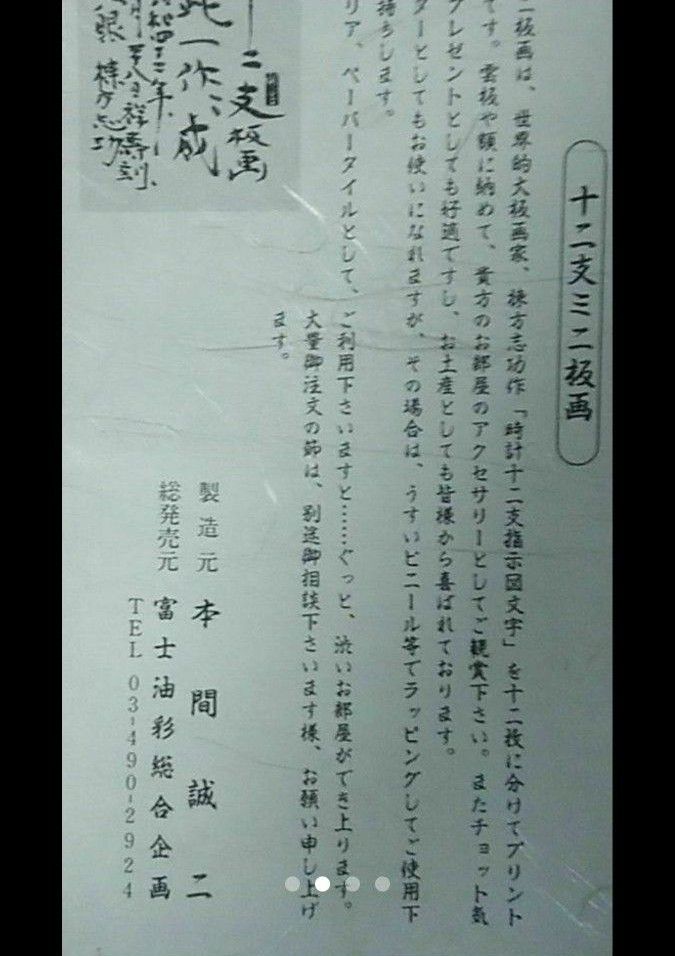 十二支ミニ板画
二板画は、世界的大板画家、棟方志功作「時計十二支指示図文字」を十二枚に分けてプリント
です。雲板や額に納めて、貴方のお部屋のアクセサリーとしてご観賞下さい。またチョット気
プレゼントとしても好適ですし、お土産としても皆様から喜ばれております。
ターとしてもお使いになれますが、その場合は、うすいビニール等でラッピングしてご使用下
持ちします。
リア、ペーパータイルとして、ご利用下さいますと……ぐっと、渋いお部屋ができ上ります。
大量御注文の節は、別途御相談下さいます様、お願い申し上げ
ます。
製造元 本間誠二
総発売元 富士油彩総合企画
TEL 03-490-2924
十二支板画
此一作、成
年、
月廿八日
棟方志功